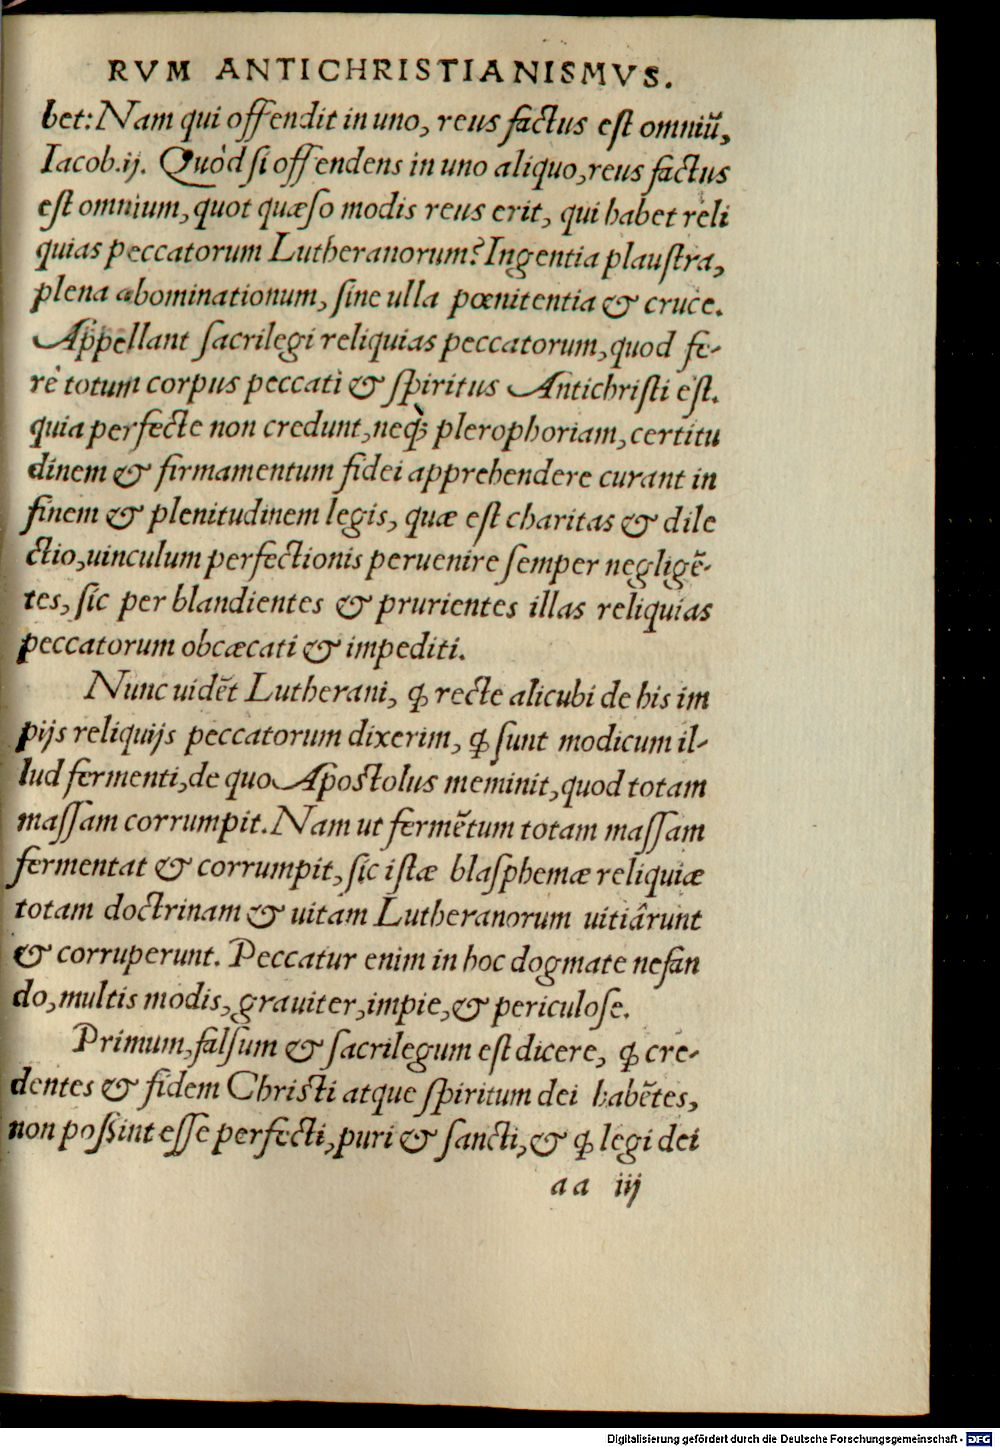 RVM ANTICHRISTIANISMVS.
bet: Nam qui offendit in uno, reus factus est omniũ,
Iacob.ij. Quòd si offendens in uno aliquo, reus factus
est omnium, quot quæso modis reus erit, qui habet reli
quias peccatorum Lutheranorum? Ingentia plaustra,
plena abominationum, sine ulla pœnitentia & cruce.
Appellant sacrilegi reliquias peccatorum, quod fe-
rè totum corpus peccati & spiritus Antichristi est.
quia perfecte non credunt, neq́; plerophoriam, certitu
dinem & firmamentum fidei apprehendere curant in
finem & plenitudinem legis, quæ est charitas & dile
ctio, uinculum perfectionis peruenire semper negligẽ-
tes, sic per blandientes & prurientes illas reliquias
peccatorum obcæcati & impediti.
Nunc uidẽt Lutherani, ꝙ recte alicubi de his im
pijs reliquijs peccatorum dixerim, ꝙ sunt modicum il-
lud fermenti, de quo Apostolus meminit, quod totam
massam corrumpit. Nam ut fermẽtum totam massam
fermentat & corrumpit, sic istæ blasphemæ reliquiæ
totam doctrinam & uitam Lutheranorum uitiârunt
& corruperunt. Peccatur enim in hoc dogmate nefan
do, multis modis, grauiter, impie, & periculose.
Primum, falsum & sacrilegum est dicere, ꝙ cre-
dentes & fidem Christi atque spiritum dei habẽtes,
non possint esse perfecti, puri & sancti, & ꝙ legi dei
aa iij
Digitalisierung gefördert durch die Deutsche Forschungsgemeinschaft - DFG